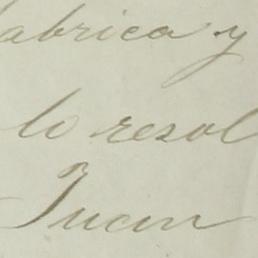 abrica y
lo resol
Juan